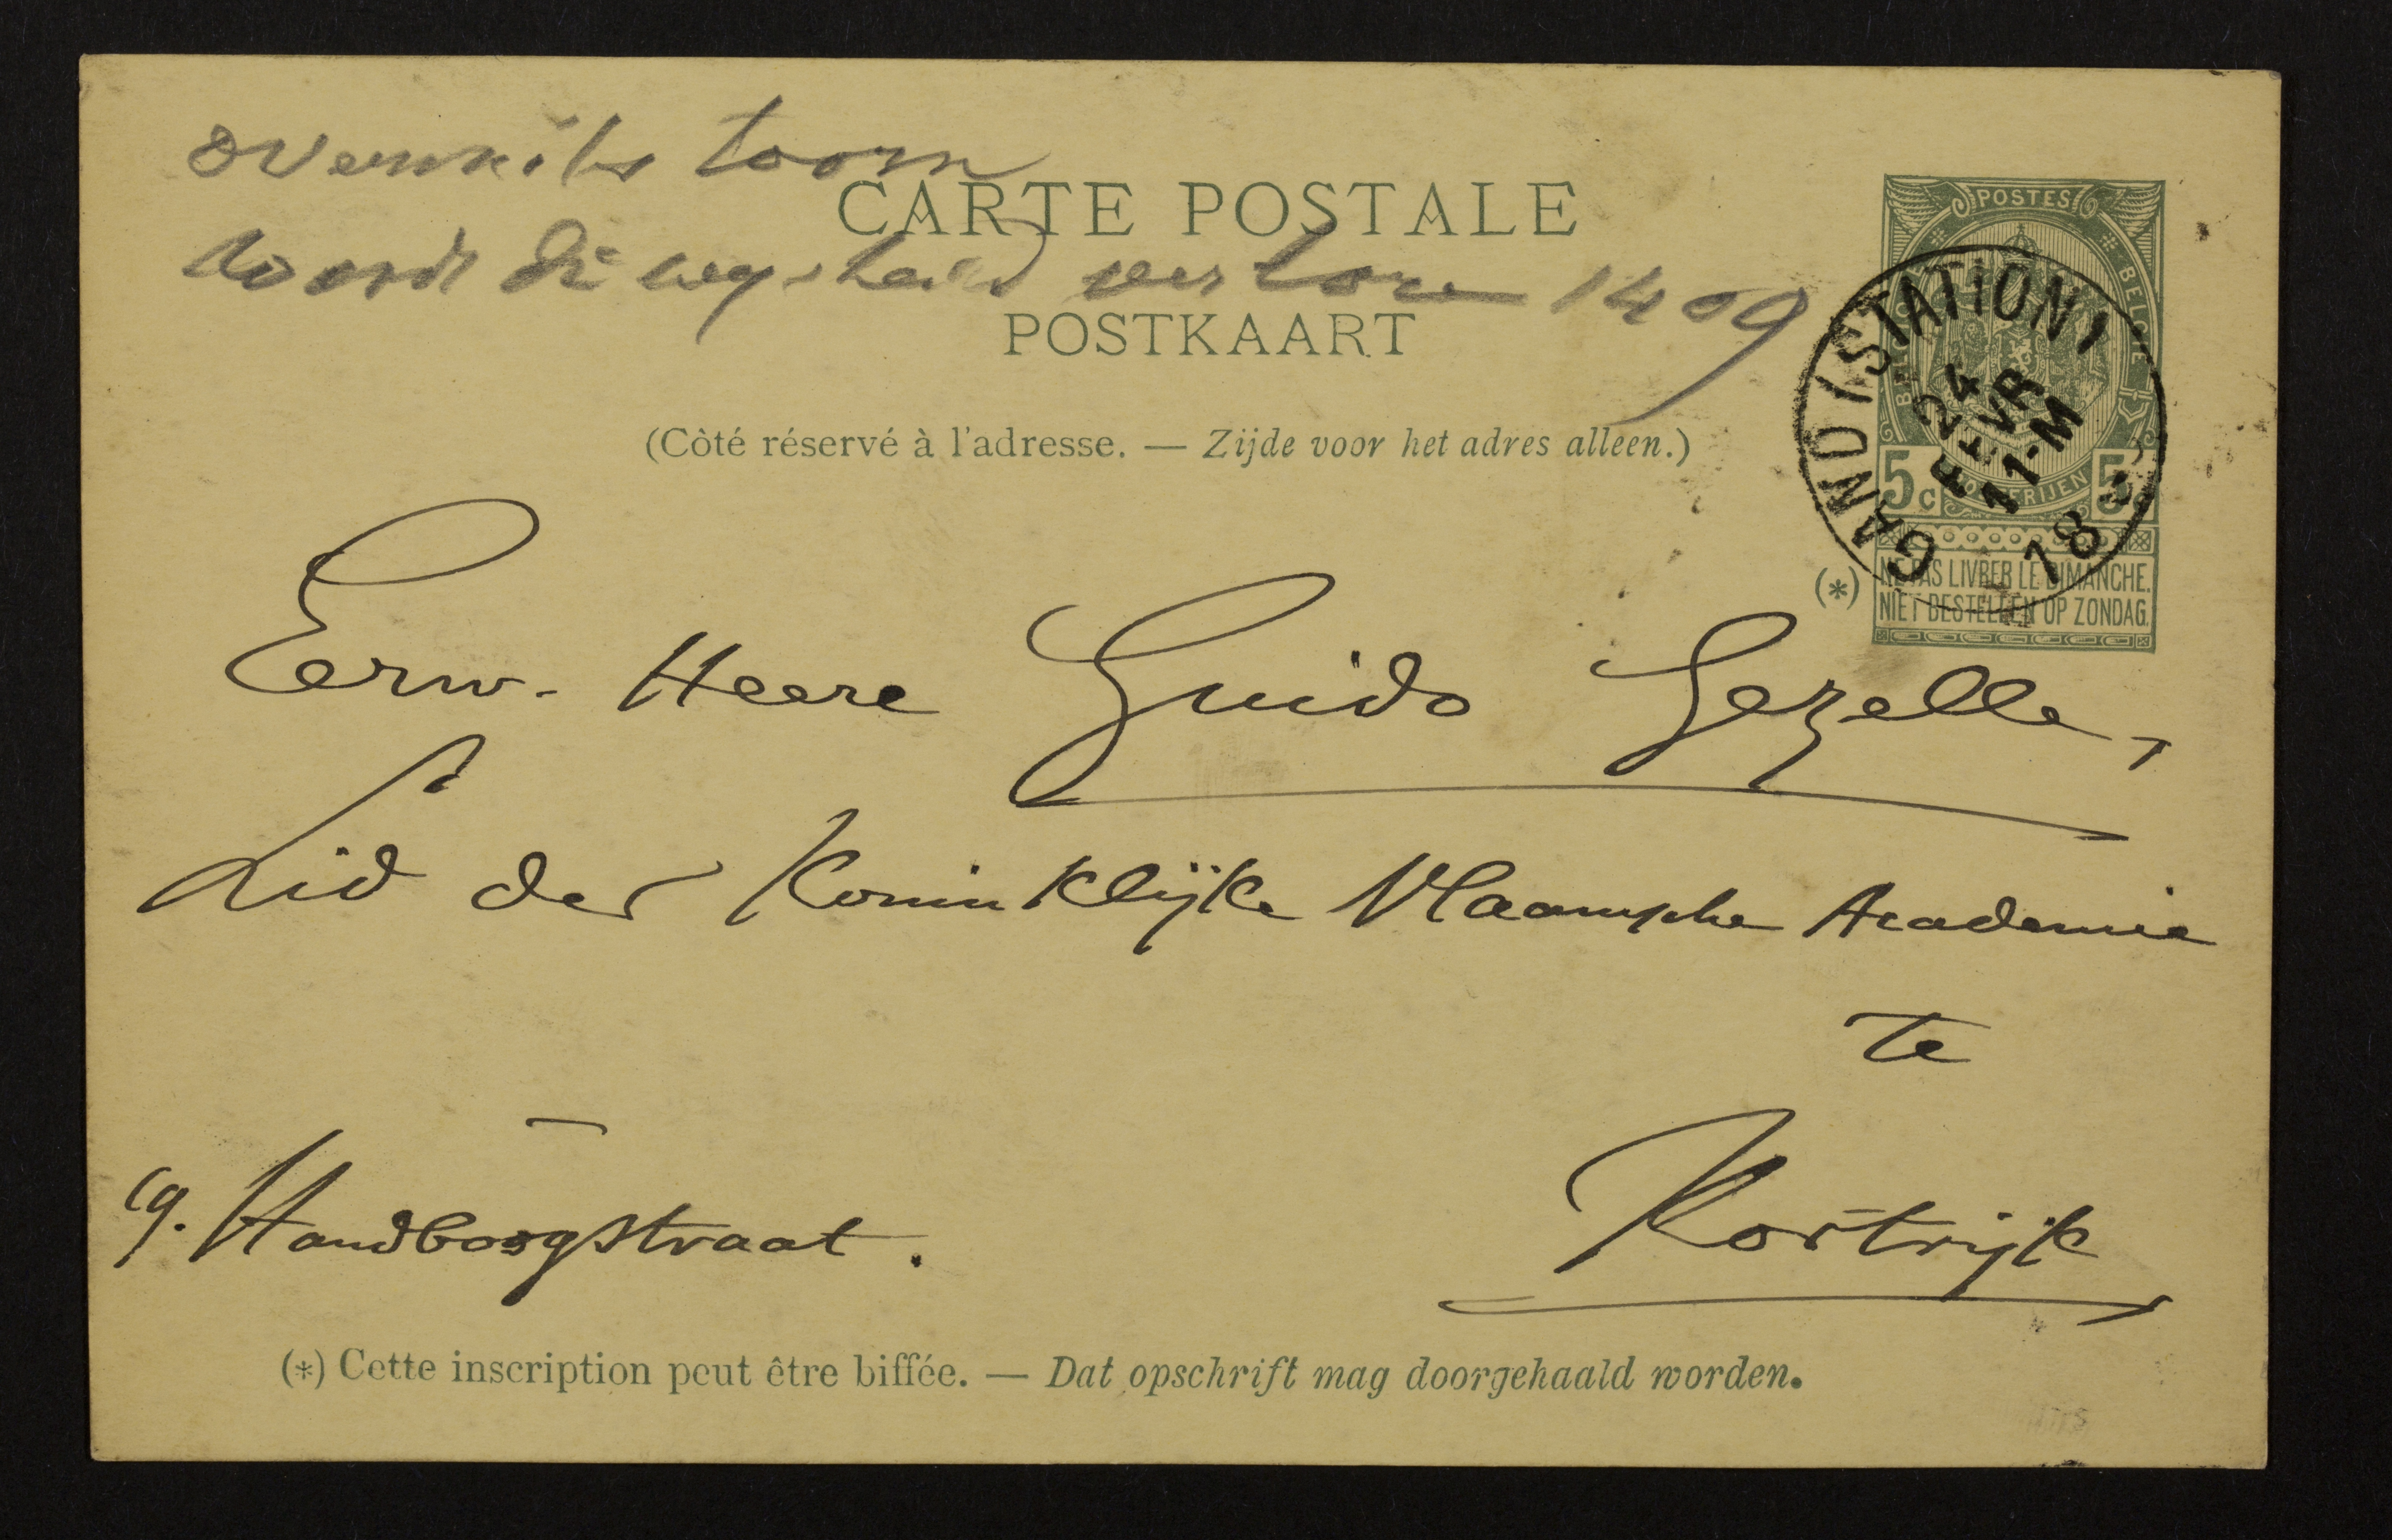 toorn
wordt die wysheid verloren 1409
CARTE POSTALE
POSTKAART
(Côté réservé à l'adresse. — Zijde voor het adres alleen.)
POSTES
BELGIE
5c 5c
GAND (STATION)
24
FEVR
11-M
18
(*)
NE PAS LIVRER LE DIMANCHE.
NIET BESTELLEN OP ZONDAG.
Eerw. Heere Guido Gezelle,
Lid der Koninklijke Vlaamsche Academie
te
19. Handboogstraat.
Kortrijk
(*) Cette inscription peut être biffée. — Dat opschrift mag doorgehaald worden.